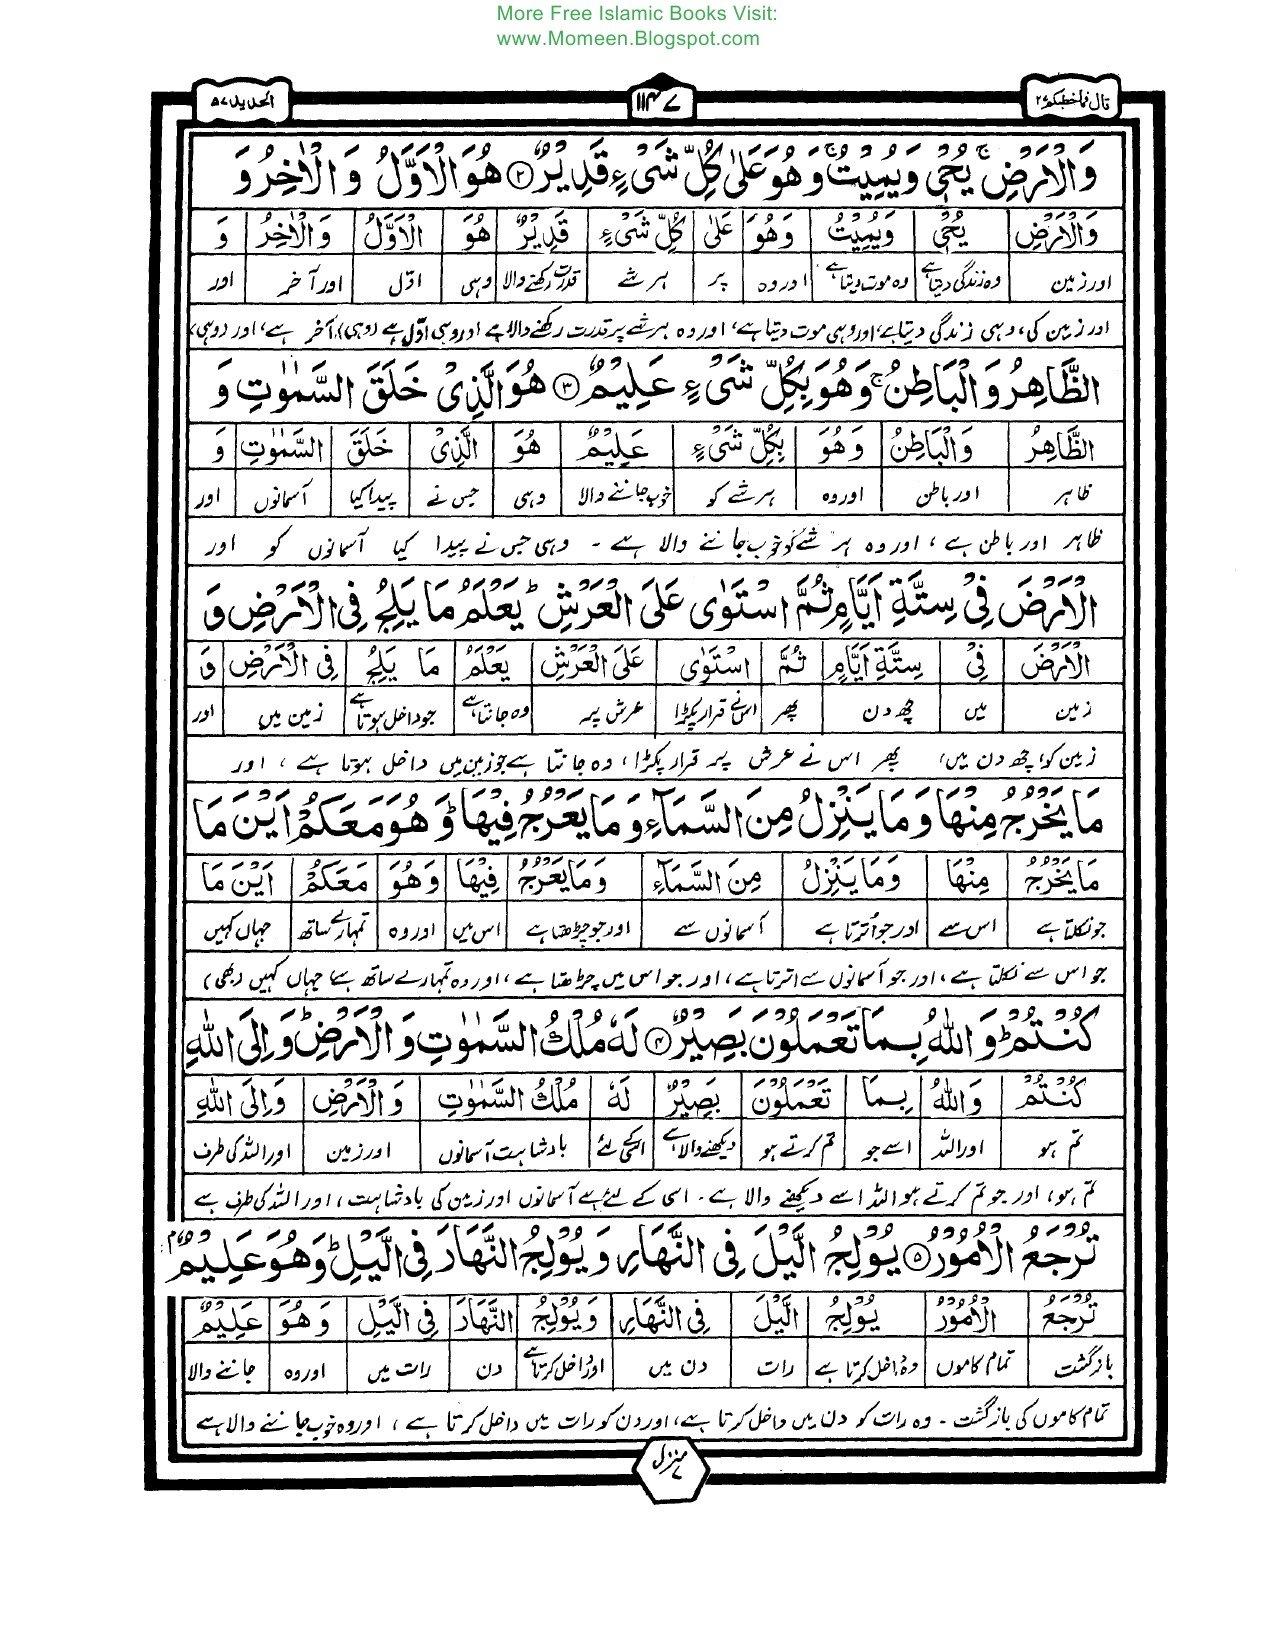 More Free Islamic Books Visit:
www.Momeen.Blogspot.com
قال فما خطبكم ۲۷
۱۱۴۷
الحدید ۵۷
وَالْاَرْضِ ۚ یُحْیٖ وَیُمِیْتُ ۚ وَهُوَ عَلٰی كُلِّ شَیْءٍ قَدِیْرٌ ﴿۲﴾ هُوَ الْاَوَّلُ وَ الْاٰخِرُ وَ
وَالْاَرْضِ یُحْیٖ وَیُمِیْتُ وَهُوَ عَلٰی كُلِّ شَیْءٍ قَدِیْرٌ هُوَ الْاَوَّلُ وَالْاٰخِرُ وَ
اور زمین وہ زندگی دیتا ہے وہ موت دیتا ہے اور وہ پر ہر شے قدرت رکھنے والا وہی اوّل اور آخر اور
اور زمین کی، وہی زندگی دیتا ہے، اور وہی موت دیتا ہے، اور وہ ہر شے پر قدرت رکھنے والا ہے (وہی اوّل ہے (وہی)، آخر ہے، اور (وہی)
الظَّاهِرُ وَ الْبَاطِنُ ۚ وَهُوَ بِكُلِّ شَیْءٍ عَلِیْمٌ ﴿۳﴾ هُوَ الَّذِیْ خَلَقَ السَّمٰوٰتِ وَ
الظَّاهِرُ وَالْبَاطِنُ وَهُوَ بِكُلِّ شَیْءٍ عَلِیْمٌ هُوَ الَّذِیْ خَلَقَ السَّمٰوٰتِ وَ
ظاہر اور باطن اور وہ ہر شے کو خوب جاننے والا وہی جس نے پیدا کیا آسمانوں اور
ظاہر اور باطن ہے، اور وہ ہر شے کو خوب جاننے والا ہے ۔ وہی جس نے پیدا کیا آسمانوں کو اور
الْاَرْضَ فِیْ سِتَّةِ اَیَّامٍ ثُمَّ اسْتَوٰی عَلَی الْعَرْشِ ؕ یَعْلَمُ مَا یَلِجُ فِی الْاَرْضِ وَ
الْاَرْضَ فِیْ سِتَّةِ اَیَّامٍ ثُمَّ اسْتَوٰی عَلَی الْعَرْشِ یَعْلَمُ مَا یَلِجُ فِی الْاَرْضِ وَ
زمین میں چھ دن پھر اس نے قرار پکڑا عرش پر وہ جانتا ہے جو داخل ہوتا ہے زمین میں اور
زمین کو، چھ دن میں، پھر اس نے عرش پر قرار پکڑا، وہ جانتا ہے جو زمین میں داخل ہوتا ہے، اور
مَا یَخْرُجُ مِنْهَا وَ مَا یَنْزِلُ مِنَ السَّمَآءِ وَ مَا یَعْرُجُ فِیْهَا ؕ وَ هُوَ مَعَكُمْ اَیْنَ مَا
مَا یَخْرُجُ مِنْهَا وَمَا یَنْزِلُ مِنَ السَّمَآءِ وَمَا یَعْرُجُ فِیْهَا وَهُوَ مَعَكُمْ اَیْنَ مَا
جو نکلتا ہے اس سے اور جو اُترتا ہے آسمانوں سے اور جو چڑھتا ہے اس میں اور وہ تمہارے ساتھ جہاں کہیں
جو اس سے نکلتا ہے، اور جو آسمانوں سے اترتا ہے، اور جو اس میں چڑھتا ہے، اور وہ تمہارے ساتھ ہے، جہاں کہیں (بھی)
كُنْتُمْ ؕ وَ اللّٰهُ بِمَا تَعْمَلُوْنَ بَصِیْرٌ ﴿۴﴾ لَهٗ مُلْكُ السَّمٰوٰتِ وَ الْاَرْضِ ؕ وَ اِلَی اللّٰهِ
كُنْتُمْ وَاللّٰهُ بِمَا تَعْمَلُوْنَ بَصِیْرٌ لَهٗ مُلْكُ السَّمٰوٰتِ وَالْاَرْضِ وَاِلَی اللّٰهِ
تم ہو اور اللہ اسے جو تم کرتے ہو دیکھنے والا ہے اسکے لئے بادشاہت آسمانوں اور زمین اور اللہ کی طرف
تم ہو، اور جو تم کرتے ہو اللہ اسے دیکھنے والا ہے ۔ اسی کے لئے ہے آسمانوں اور زمین کی بادشاہت، اور اللہ کی طرف ہے
تُرْجَعُ الْاُمُوْرُ ﴿۵﴾ یُوْلِجُ الَّیْلَ فِی النَّهَارِ وَ یُوْلِجُ النَّهَارَ فِی الَّیْلِ ؕ وَهُوَ عَلِیْمٌۢ
تُرْجَعُ الْاُمُوْرُ یُوْلِجُ الَّیْلَ فِی النَّهَارِ وَیُوْلِجُ النَّهَارَ فِی الَّیْلِ وَهُوَ عَلِیْمٌ
بازگشت تمام کاموں وہ داخل کرتا ہے رات دن میں اور داخل کرتا ہے دن رات میں اور وہ جاننے والا
تمام کاموں کی بازگشت ۔ وہ رات کو دن میں داخل کرتا ہے، اور دن کو رات میں داخل کرتا ہے، اور وہ خوب جاننے والا ہے
منزل ۷